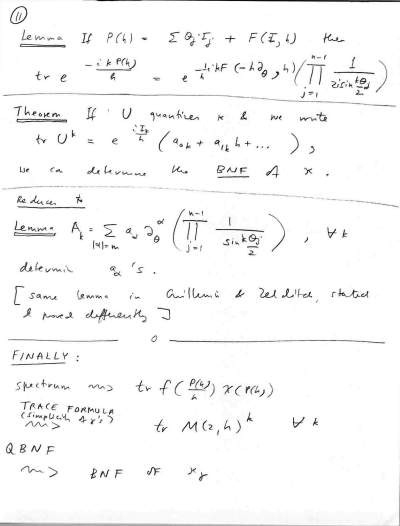 11
Lemma If P(h) = Σ θj Ij + F(I, h) then
tr e^{-i k P(h)/h} = e^{-\frac{i}{h} k F(-h∂_θ, h)} ( ∏_{j=1}^{n-1} \frac{1}{2i sin \frac{kθj}{2}} )
Theorem If U quantizes κ & we write
tr U^k = e^{\frac{i I_k}{h}} ( a_{0k} + a_{1k} h + ... ),
we ca determine the BNF of κ.
Reduces to
Lemma A_k = Σ_{|α|=m} a_α ∂_θ^α ( ∏_{j=1}^{n-1} \frac{1}{sin \frac{kθj}{2}} ) , ∀ k
determin a_α's.
[ same lemma in Guillemin & Zelditch, stated
& proved differently ]
0
FINALLY:
spectrum ⇝ tr f( \frac{P(h)}{h} ) χ(P(h))
TRACE FORMULA
(simplicity of γ's)
⇝ tr M(z, h)^k ∀ k
QBNF
⇝ BNF of κ_γ